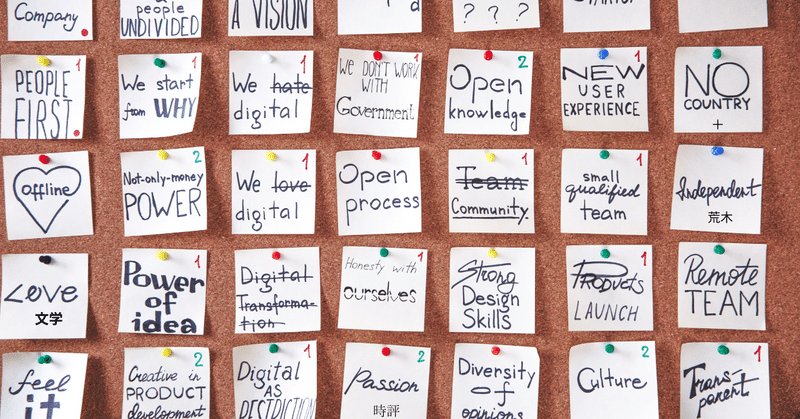 Company.
people
UNDIVIDED
A VISION
? ? ?
1
PEOPLE
FIRST
1
We start
from WHY
1
We hate
digital
1
We DON'T WORK
WITH
Government
2
Open
knowledge
1
NEW
USER
EXPERIENCE
NO
COUNTRY
+
offline
2
Not-only-money
POWER
1
We love
digital
Open
process
1
Team
Community.
1
small
qualified
team
Independent
荒木
Love
文学
1
Power
of
idea
1
Digital
Transforma-
tion
1
Honesty with
ourselves
Strong
Design
Skills
1
Products
LAUNCH
Remote
TEAM
feel
it
2
Creative in
PRODUCT
development
1
Digital
AS
2
Passion
時評
Diversity
of
opinions
2
Culture
1
Trans-
parent